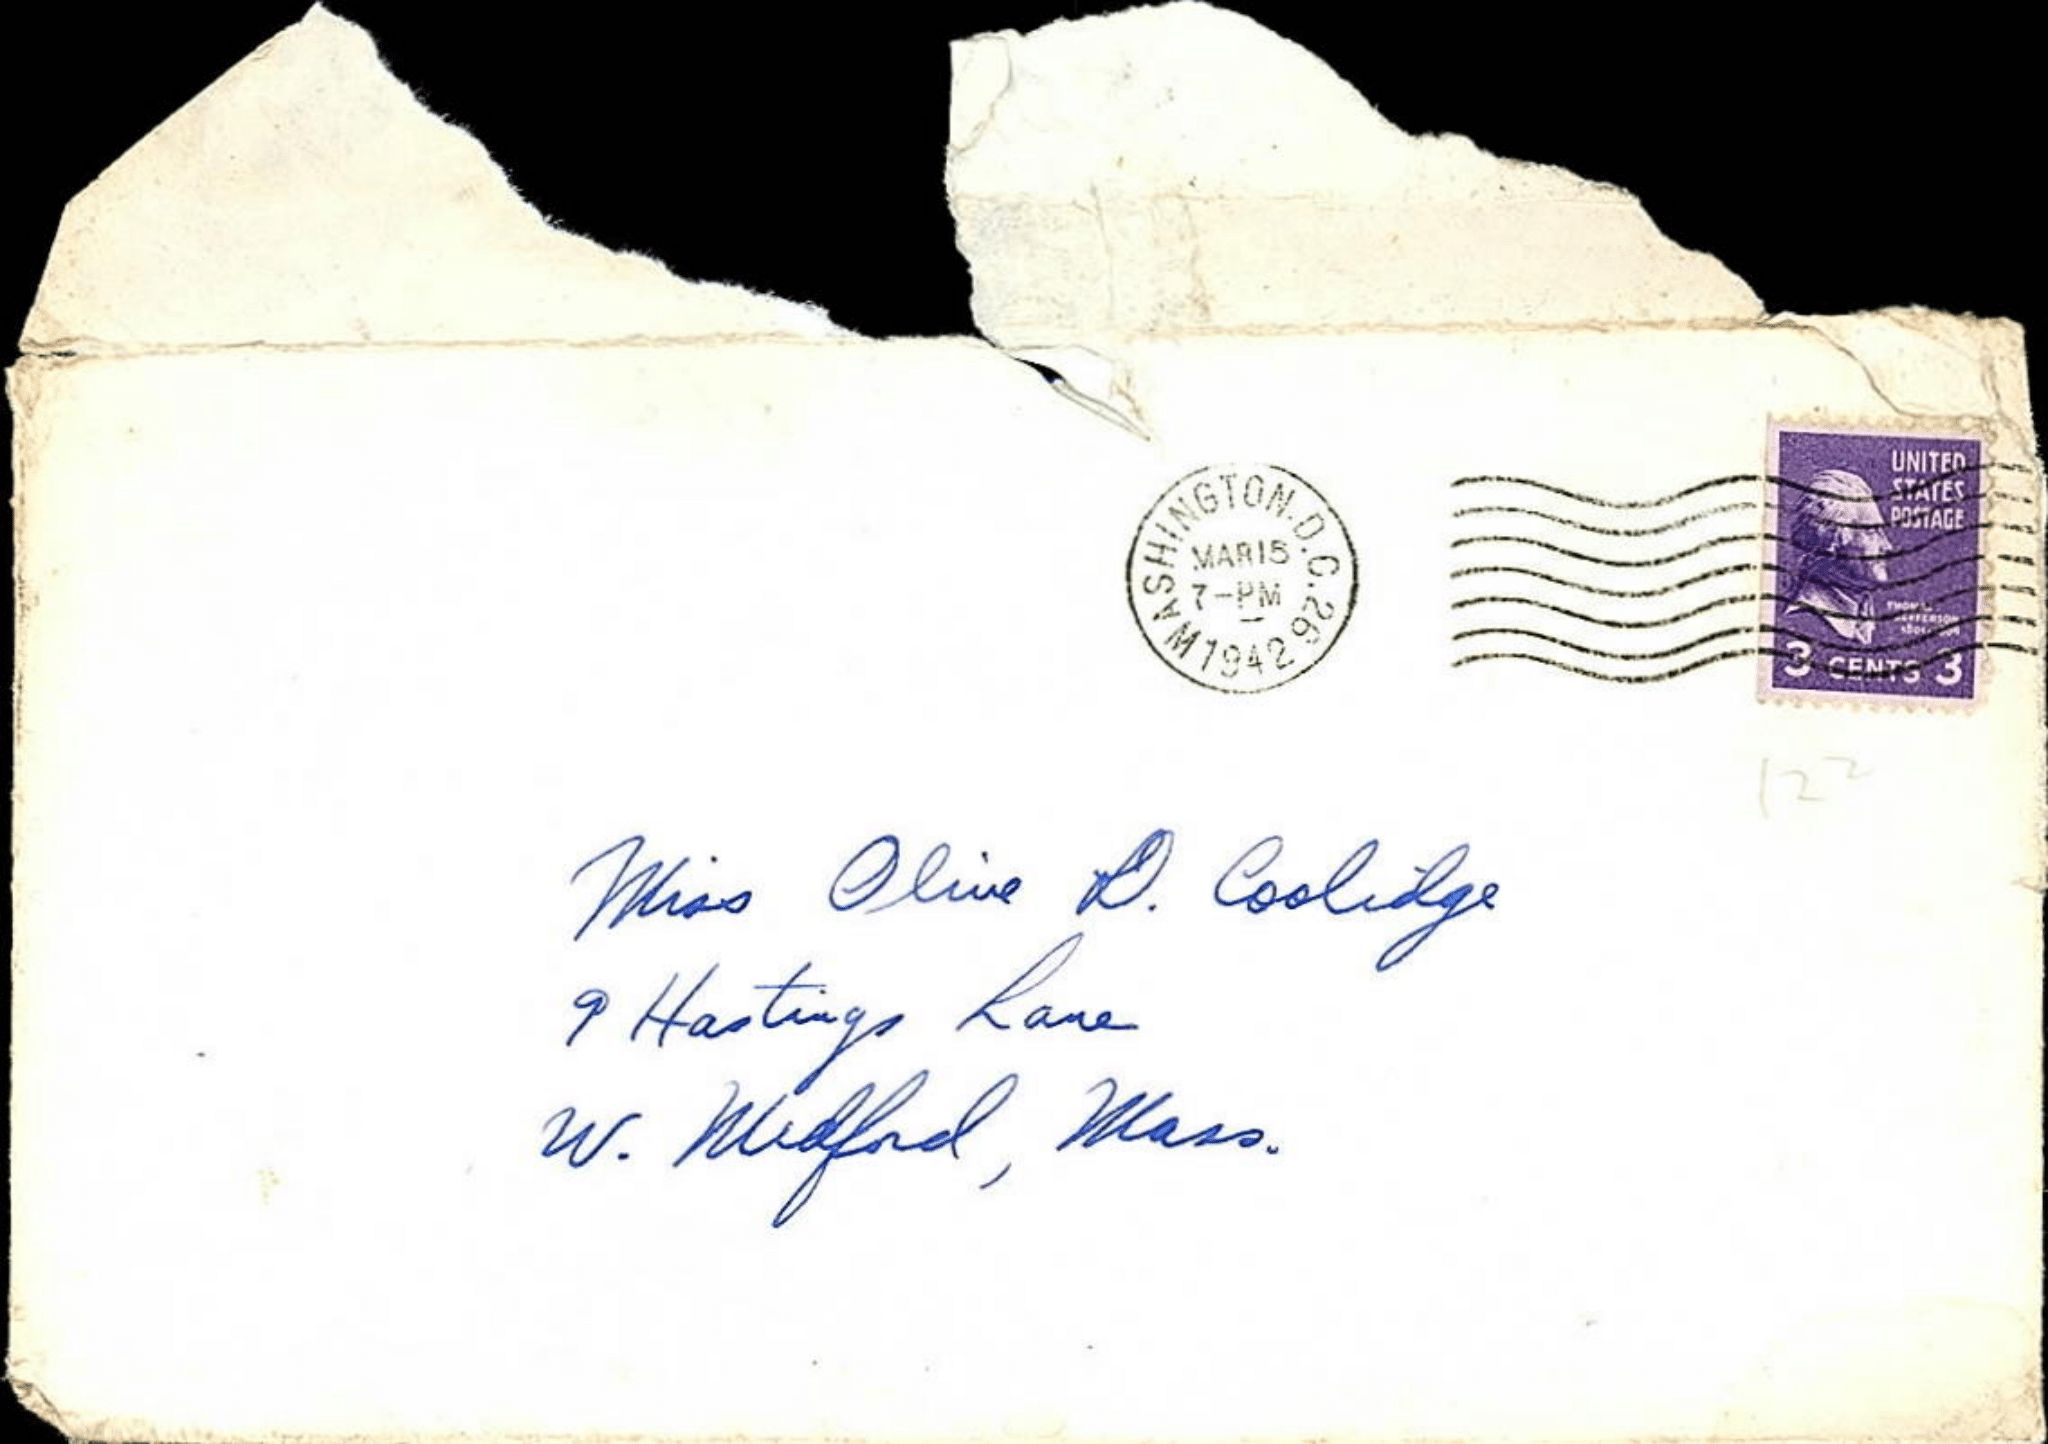 WASHINGTON.D.C. 26
MAR 15
7-PM
1942
UNITED
STATES
POSTAGE
THOMAS
JEFFERSON
3 CENTS 3
122
Miss Olive D. Coolidge
9 Hastings Lane
W. Medford, Mass.